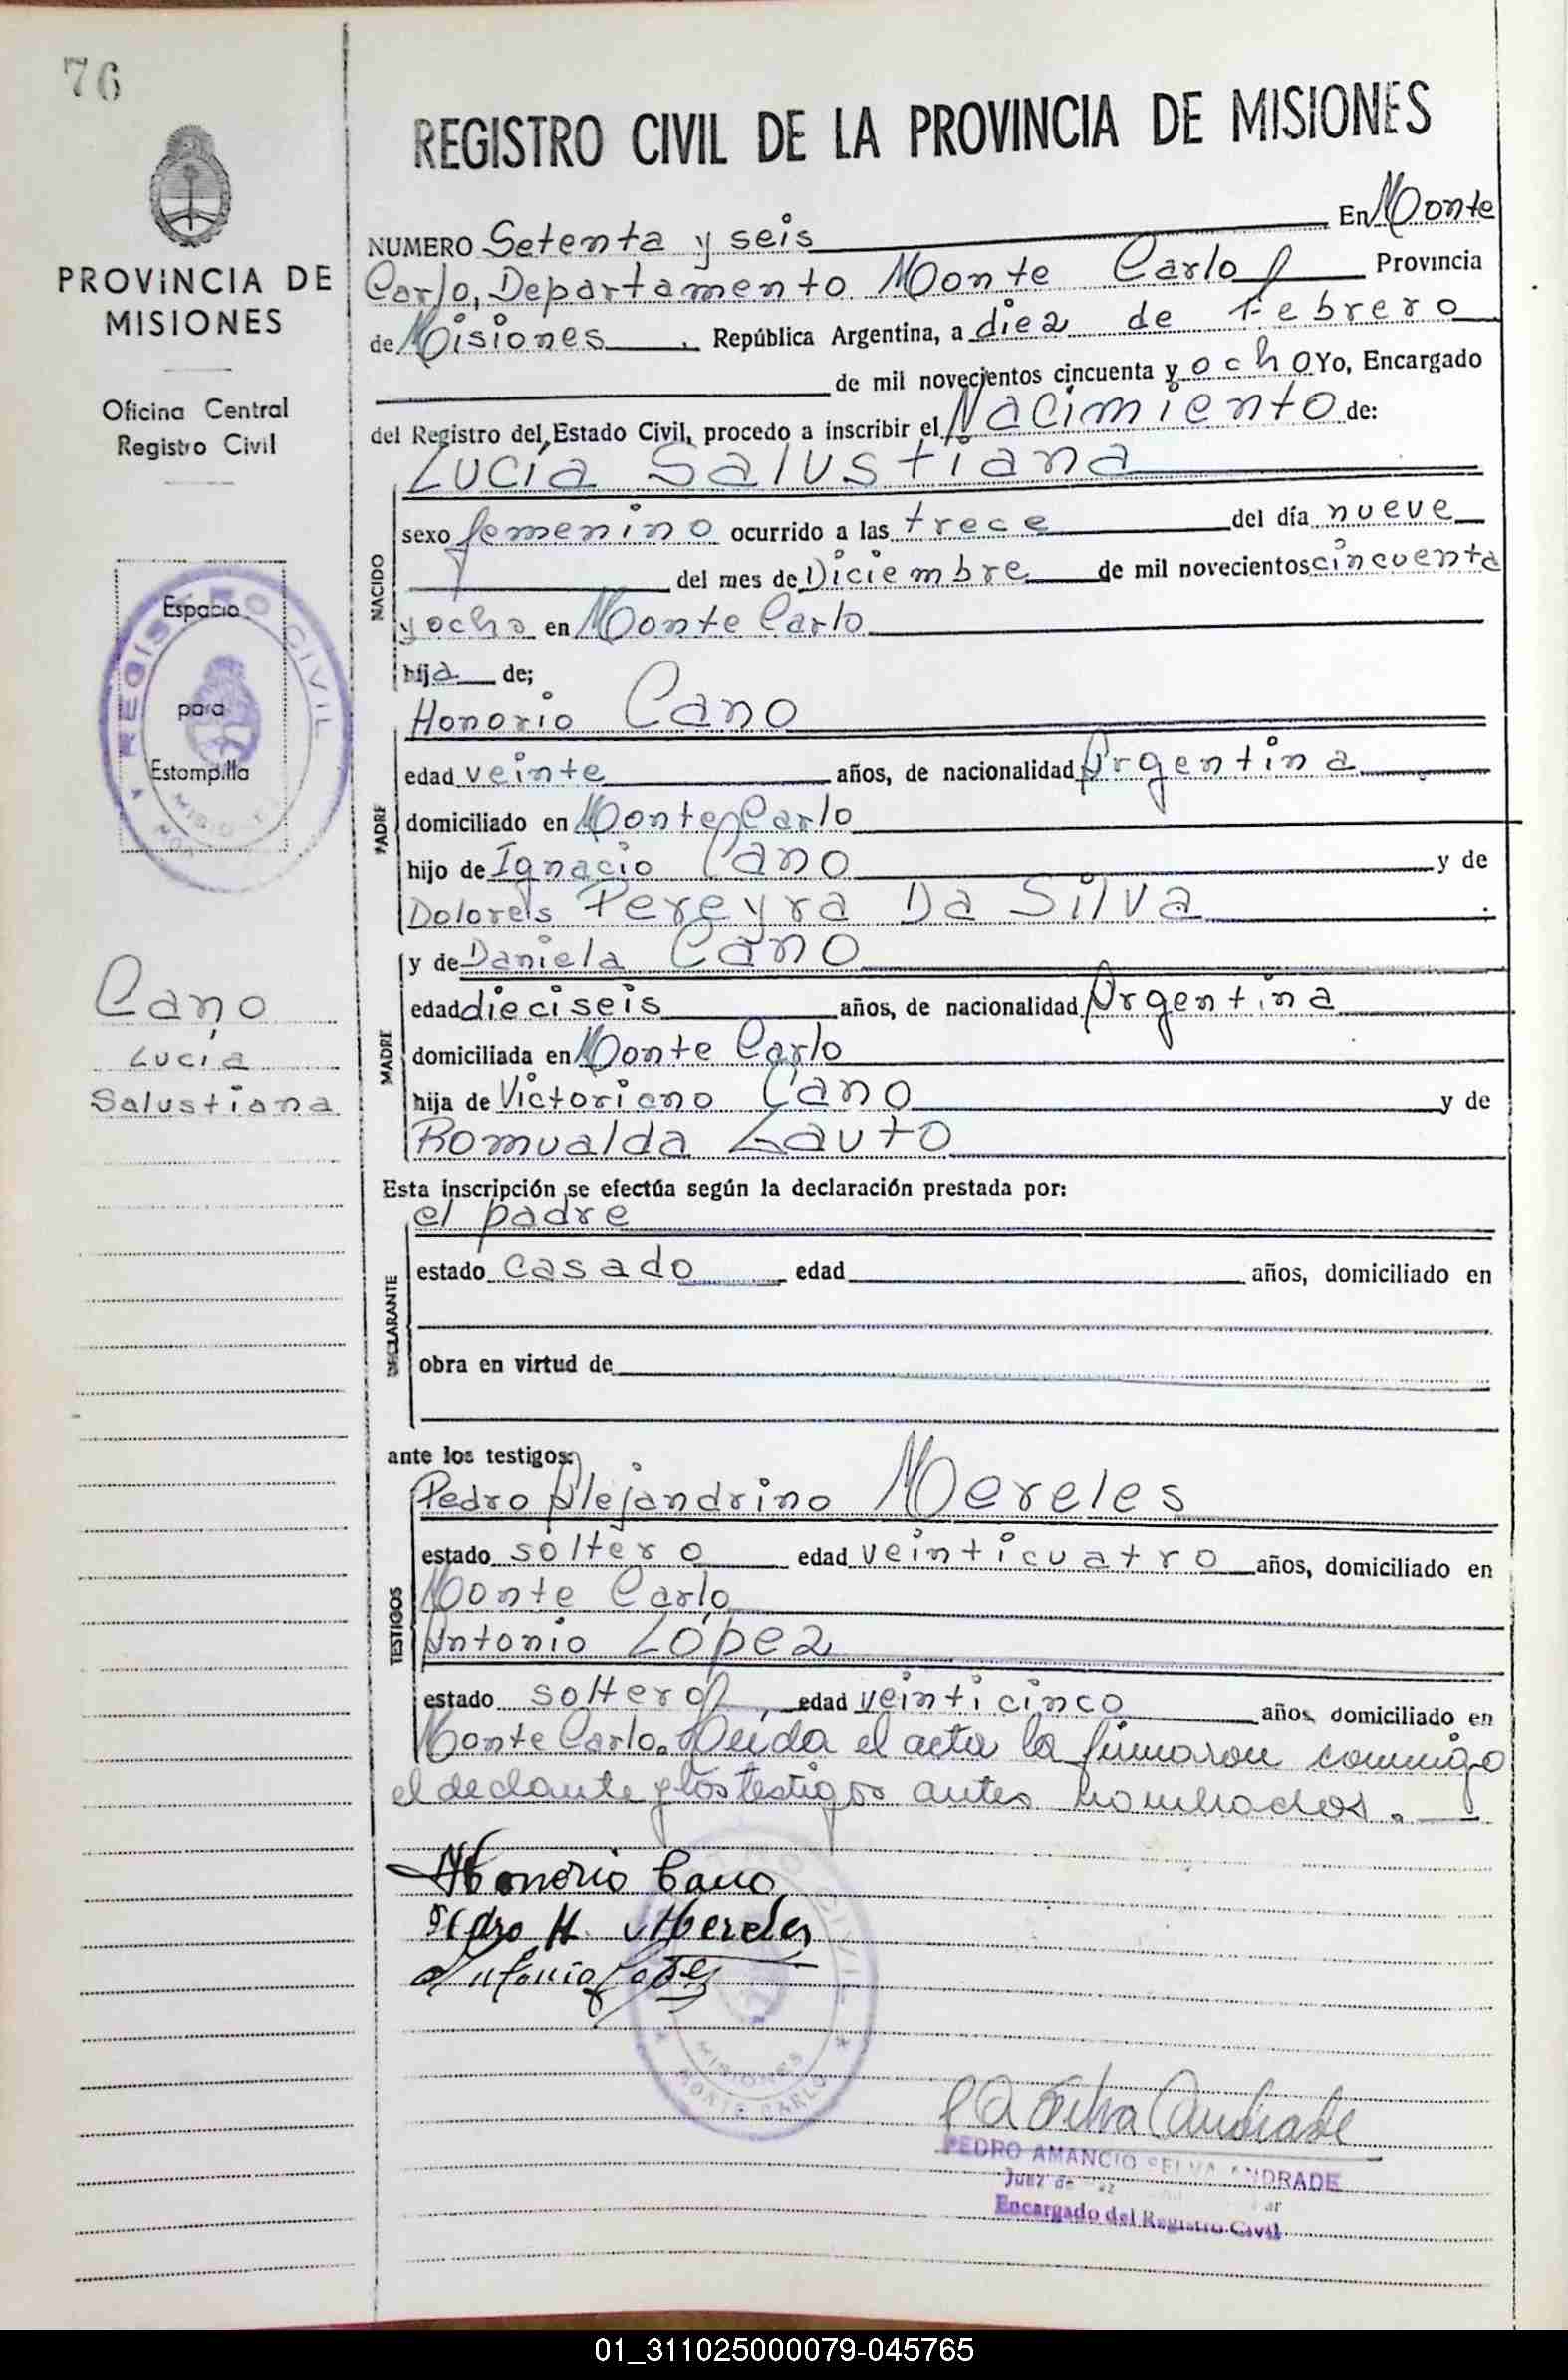 76
REGISTRO CIVIL DE LA PROVINCIA DE MISIONES
PROVINCIA DE
MISIONES
Oficina Central
Registro Civil
Espacio
para
Estampilla
REGISTRO CIVIL
MISIONES
Cano
Lucía
Salustiana
NUMERO Setenta y seis En Monte
Carlo, Departamento Monte Carlo Provincia
de Misiones, República Argentina, a diez de Febrero
de mil novecientos cincuenta y ocho Yo, Encargado
del Registro del Estado Civil, procedo a inscribir el Nacimiento de:
NACIDO
Lucía Salustiana
sexo femenino ocurrido a las trece del día nueve
del mes de Diciembre de mil novecientos cincuenta
y ocho en Monte Carlo
hija de;
PADRE
Honorio Cano
edad veinte años, de nacionalidad Argentina
domiciliado en Monte Carlo
hijo de Ignacio Cano y de
Dolores Pereyra Da Silva
MADRE
y de Daniela Cano
edad dieciseis años, de nacionalidad Argentina
domiciliada en Monte Carlo
hija de Victoriano Cano y de
Romualda Lauto
Esta inscripción se efectúa según la declaración prestada por:
DECLARANTE
el padre
estado casado edad años, domiciliado en
obra en virtud de
ante los testigos:
TESTIGOS
Pedro Alejandrino Mereles
estado soltero edad veinticuatro años, domiciliado en
Monte Carlo
Antonio López
estado soltero, edad veinticinco años, domiciliado en
Monte Carlo. Leída el acta la firmaron conmigo
el declante y los testigos antes nombrados.
Honorio Cano
Pedro A. Mereles
Antonio Lopez
CIVIL
MISIONES
MONTE CARLO
P A Selva Andrade
PEDRO AMANCIO SELVA ANDRADE
Juez de Paz
Encargado del Registro Civil
01_311025000079-045765